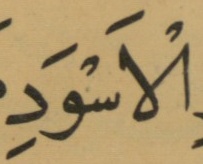 الْاَسْوَدِ